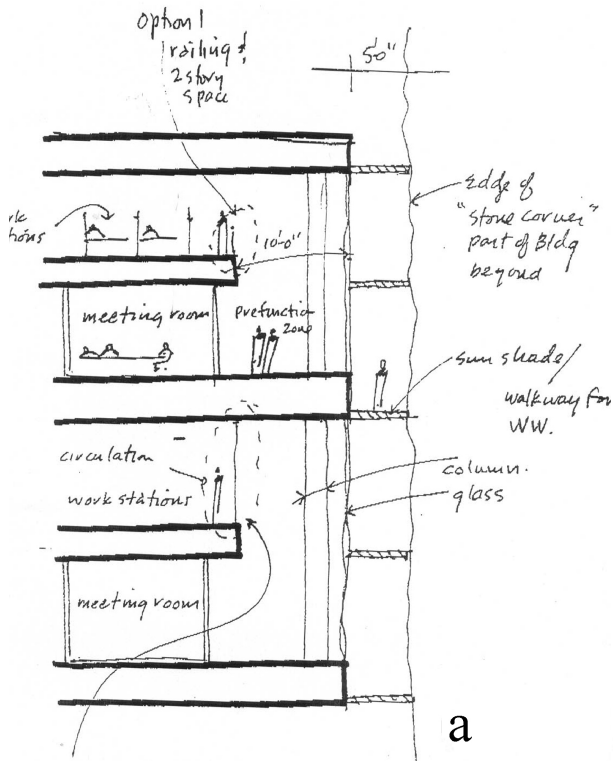 option 1
railing &
2 story
space
5'-0"
edge of
"stone corner"
part of Bldg
beyond
10'-0"
meeting room
prefunction
zone
sun shade/
walkway for
WW.
circulation
work stations
column.
glass
meeting room
a